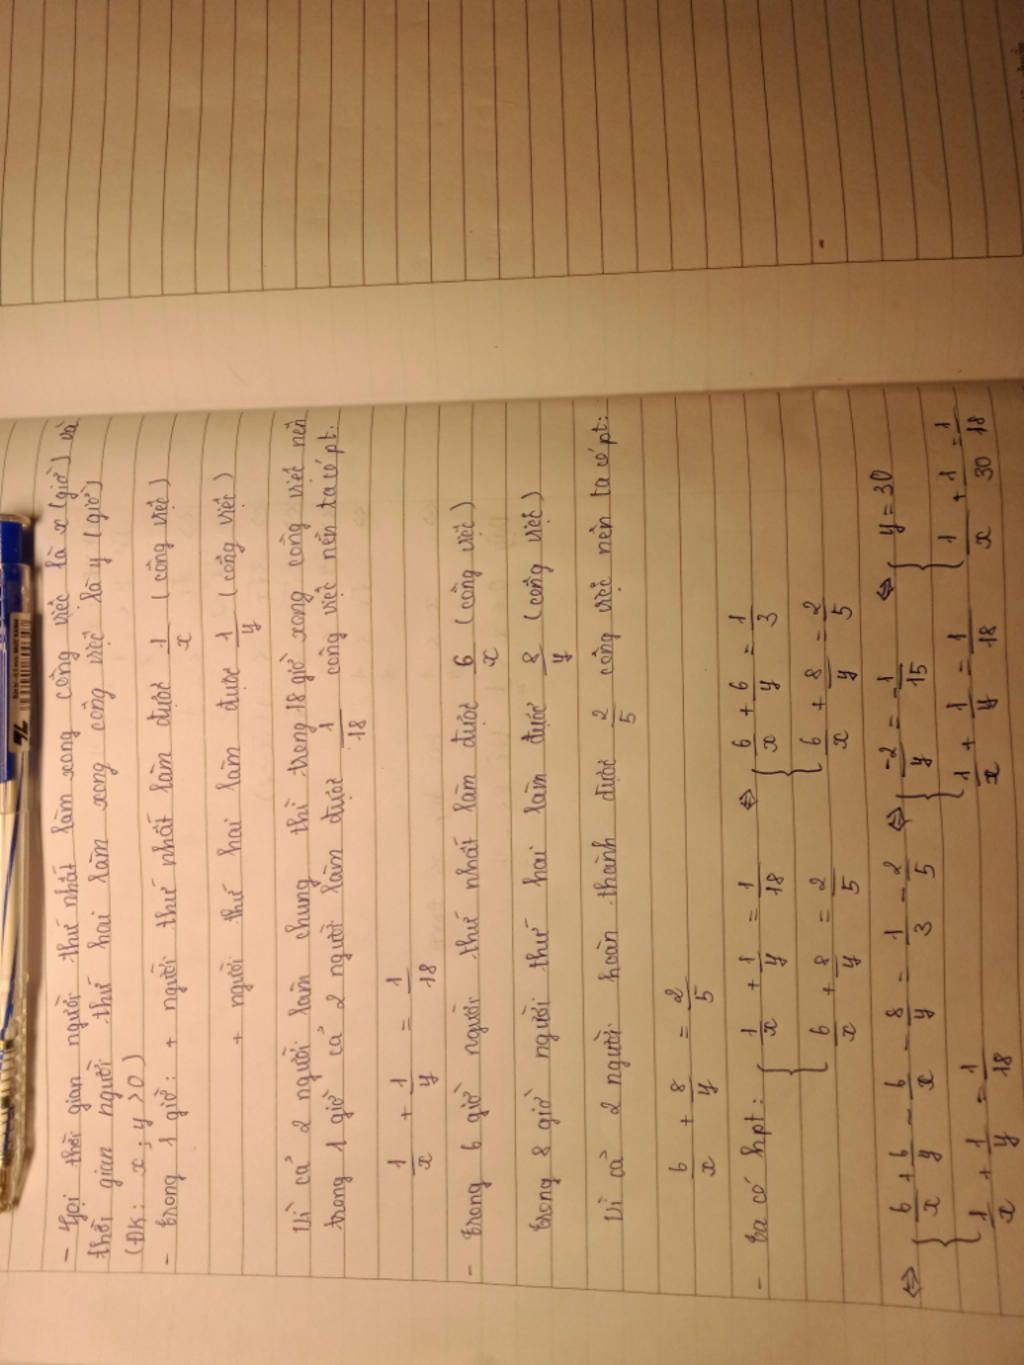 - Gọi thời gian người thứ nhất làm xong công việc là x (giờ) và
thời gian người thứ hai làm xong công việc là y (giờ)
(ĐK: x ; y > 0)
- trong 1 giờ: + người thứ nhất làm được 1/x (công việc)
+ người thứ hai làm được 1/y (công việc)
Vì cả 2 người làm chung thì trong 18 giờ xong công việc nên
trong 1 giờ cả 2 người làm được 1/18 công việc nên ta có pt:
1/x + 1/y = 1/18
- trong 6 giờ người thứ nhất làm được 6/x (công việc)
trong 8 giờ người thứ hai làm được 8/y (công việc)
Vì cả 2 người hoàn thành được 2/5 công việc nên ta có pt:
6/x + 8/y = 2/5
- ta có hpt: { 1/x + 1/y = 1/18 ⇔ { 6/x + 6/y = 1/3
{ 6/x + 8/y = 2/5 { 6/x + 8/y = 2/5
⇔ { 6/x + 6/y - 6/x - 8/y = 1/3 - 2/5 ⇔ { -2/y = -1/15 ⇔ { y = 30
{ 1/x + 1/y = 1/18 { 1/x + 1/y = 1/18 { 1/x + 1/30 = 1/18